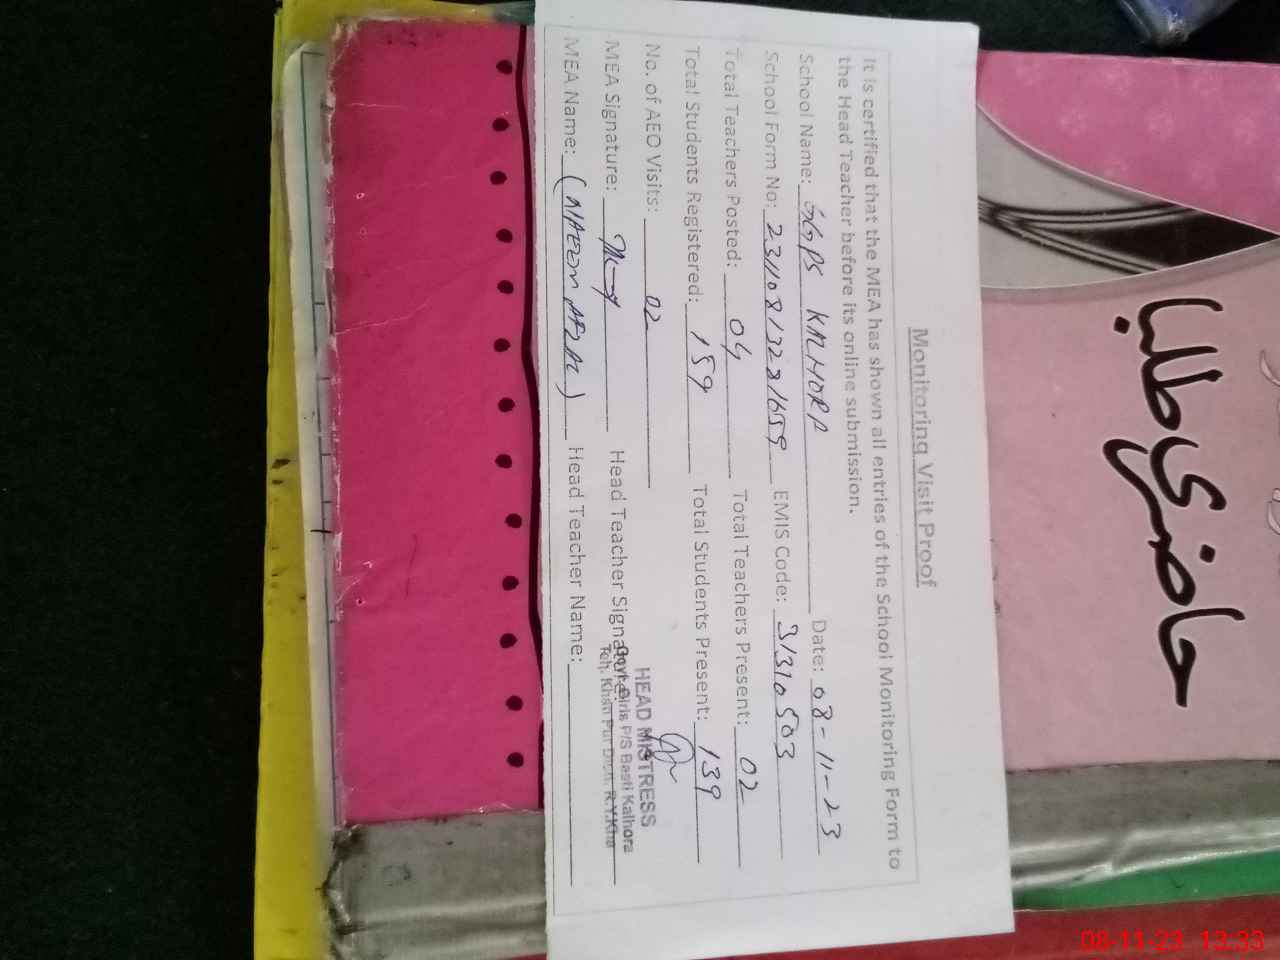 Monitoring Visit Proof
It is certified that the MEA has shown all entries of the School Monitoring Form to
the Head Teacher before its online submission.
School Name: GGPS KALHORA Date: 08-11-23
School Form No: EMIS Code: 31310503
Total Teachers Posted: 04 Total Teachers Present: 02
Total Students Registered: 159 Total Students Present: 139
No. of AEO Visits: 02
HEAD MISTRESS
MEA Signature: Head Teacher Signature:
Govt. Girls P/S Basti Kalhora
Teh. Khan Pur Distt. R.Y.Kha
MEA Name: (NAEEM AFZAL) Head Teacher Name:
حاضری طلبا
08-11-23 13:33